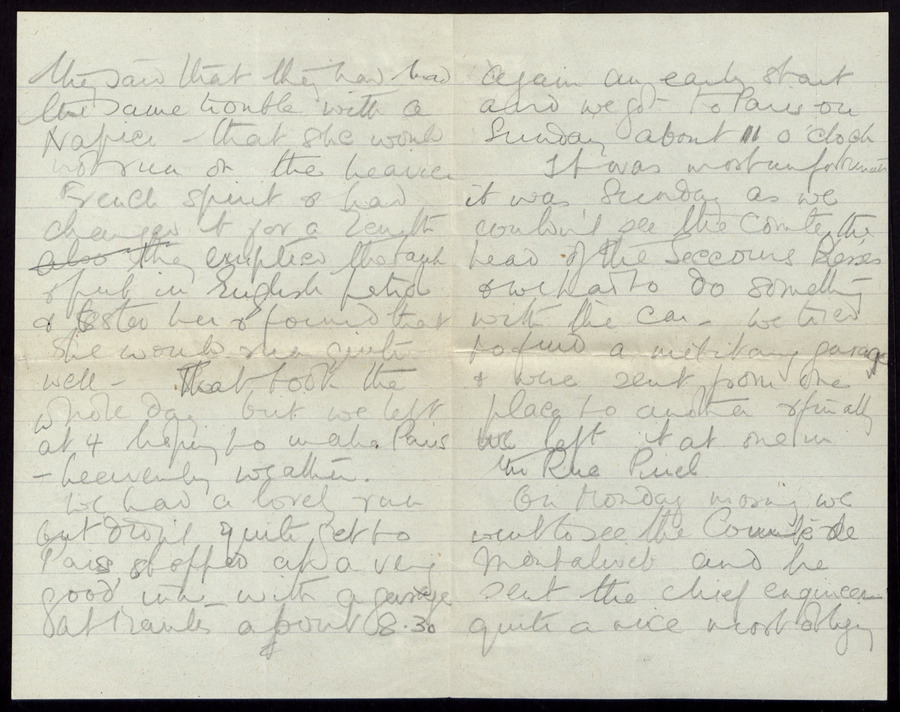 they said that they had had
the same trouble with a
Napier - that she would
not run on the heavier
French spirit & had
changed it for a Zenith
also they emptied the tank
& put in English petrol
& tested her & found that
she would run quite
well - That took the
whole day but we left
at 4 hoping to make Paris
- heavenly weather.
We had a lovely run
but didn't quite get to
Paris, stopped at a very
good inn with a garage
at Mantes about 8.30
Again an early start
and we got to Paris on
Sunday about 11 o'clock
It was most unfortunate
it was Sunday as we
couldn't see the Comte, the
head of the Secours Blessés
& we had to do something
with the car - We tried
to find a military garage
& were sent from one
place to another & finally
we left it at one in
the Rue
On Monday morning we
went to see the Comte de
Montalivet and he
sent the chief engineer
quite a nice most obliging